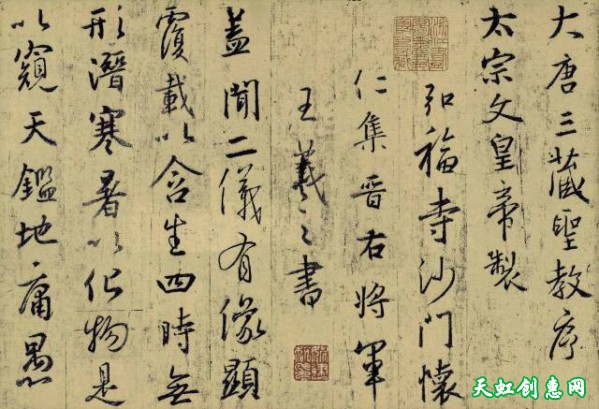 大唐三藏聖教序
太宗文皇帝製
弘福寺沙門懷
仁集晋右將軍
王羲之書
蓋聞二儀有像顯
覆載以含生四時無
形潛寒暑以化物是
以窺天鑑地庸愚
天虹创惠网